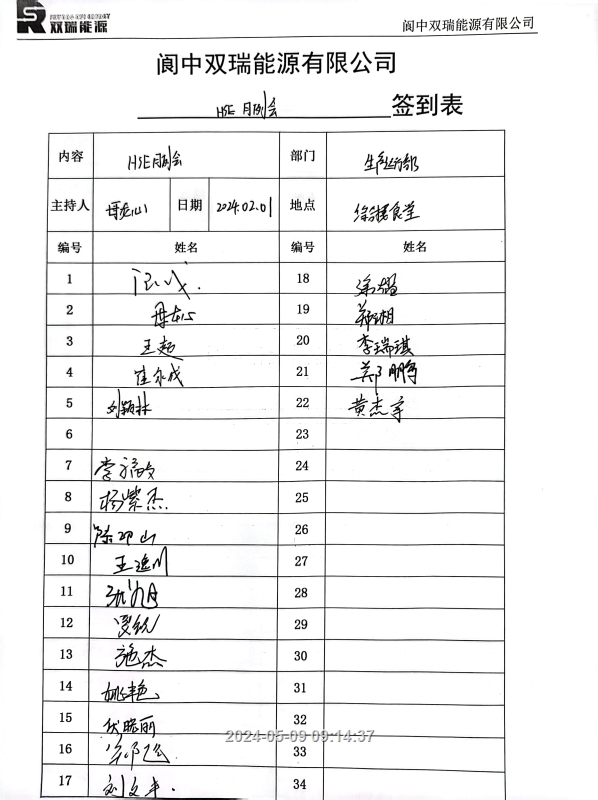 双瑞能源 阆中双瑞能源有限公司
阆中双瑞能源有限公司
HSE月例会 签到表
内容 HSE月例会 部门 生产运行部
主持人 日期 2024.02.01 地点 综合楼食堂
编号 姓名 编号 姓名
1 18
2 19 郑湘
3 王超 20 李瑞琪
4 21 郑鹏
5 刘颖林 22 黄杰宇
6 23
7 李 24
8 杨紫杰 25
9 陈邵山 26
10 王逸川 27
11 28
12 29
13 施杰 30
14 姚艳 31
15 伏晓丽 32
2024-05-09 09:14:37
16 33
17 刘文丰 34